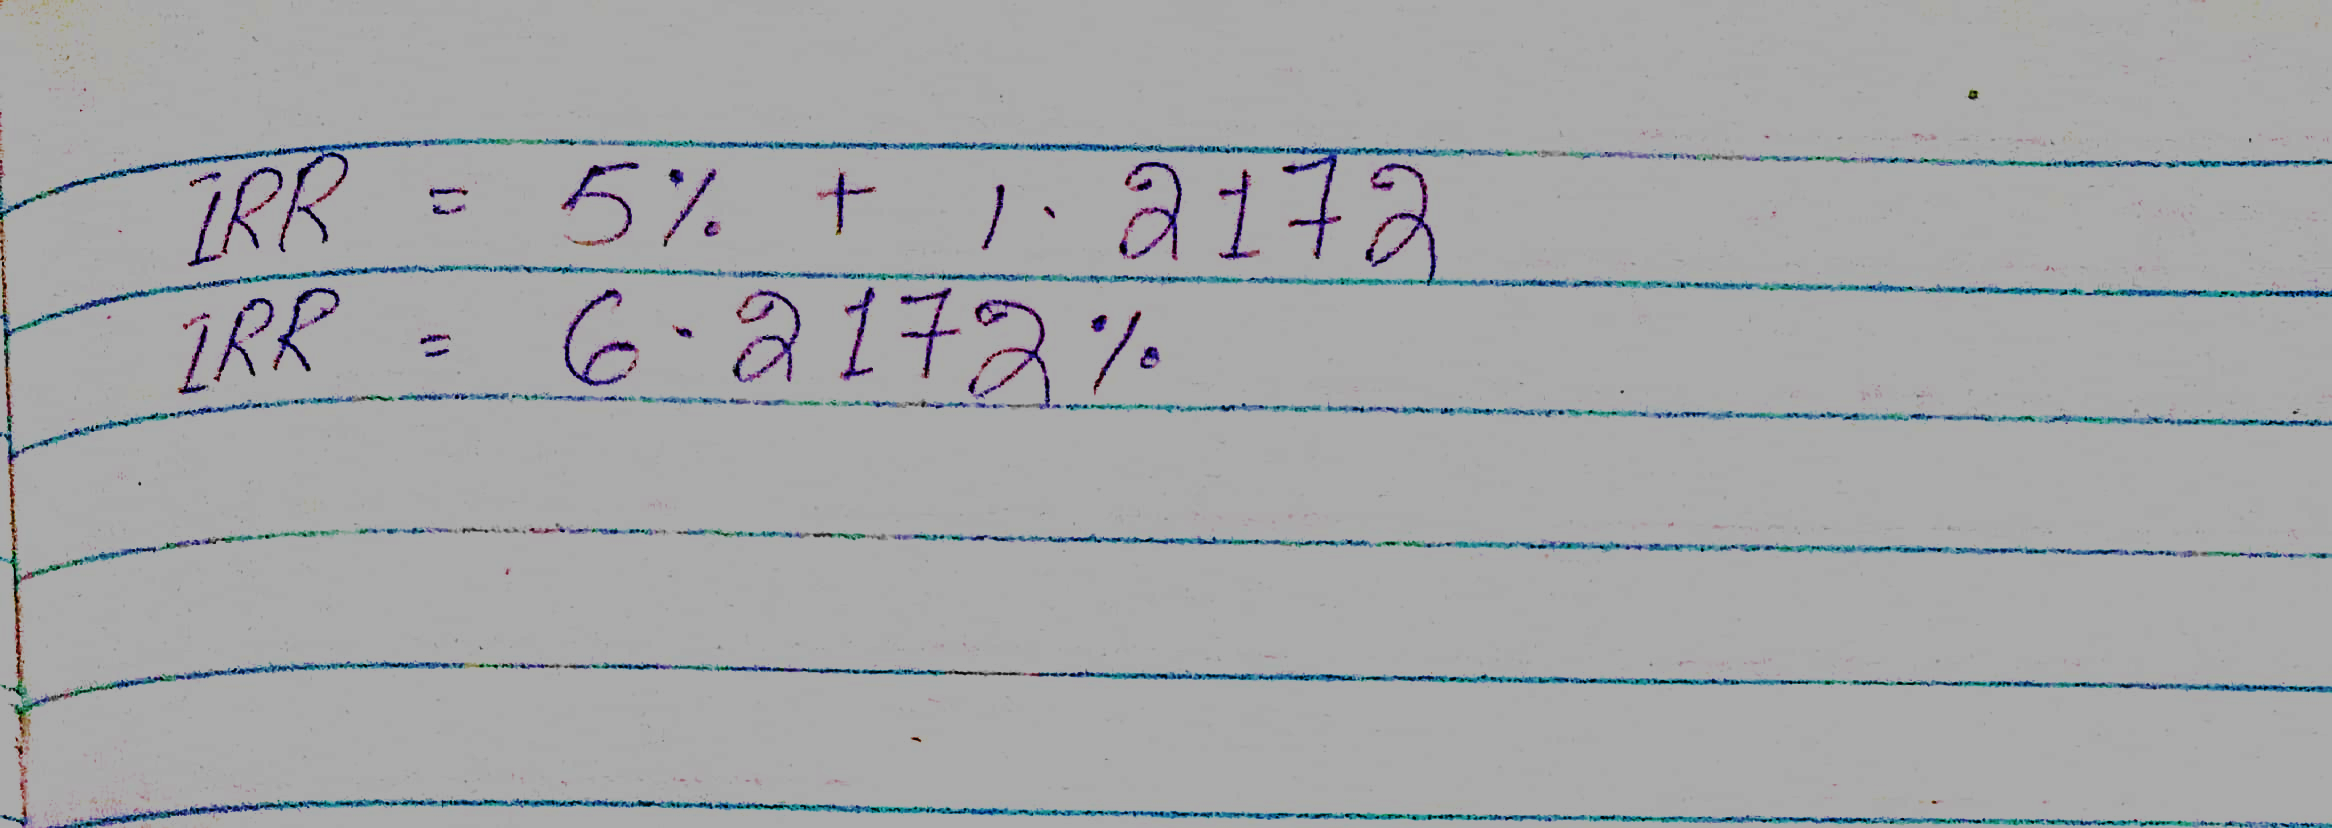 IRR = 5% + 1.2172
IRR = 6.2172%